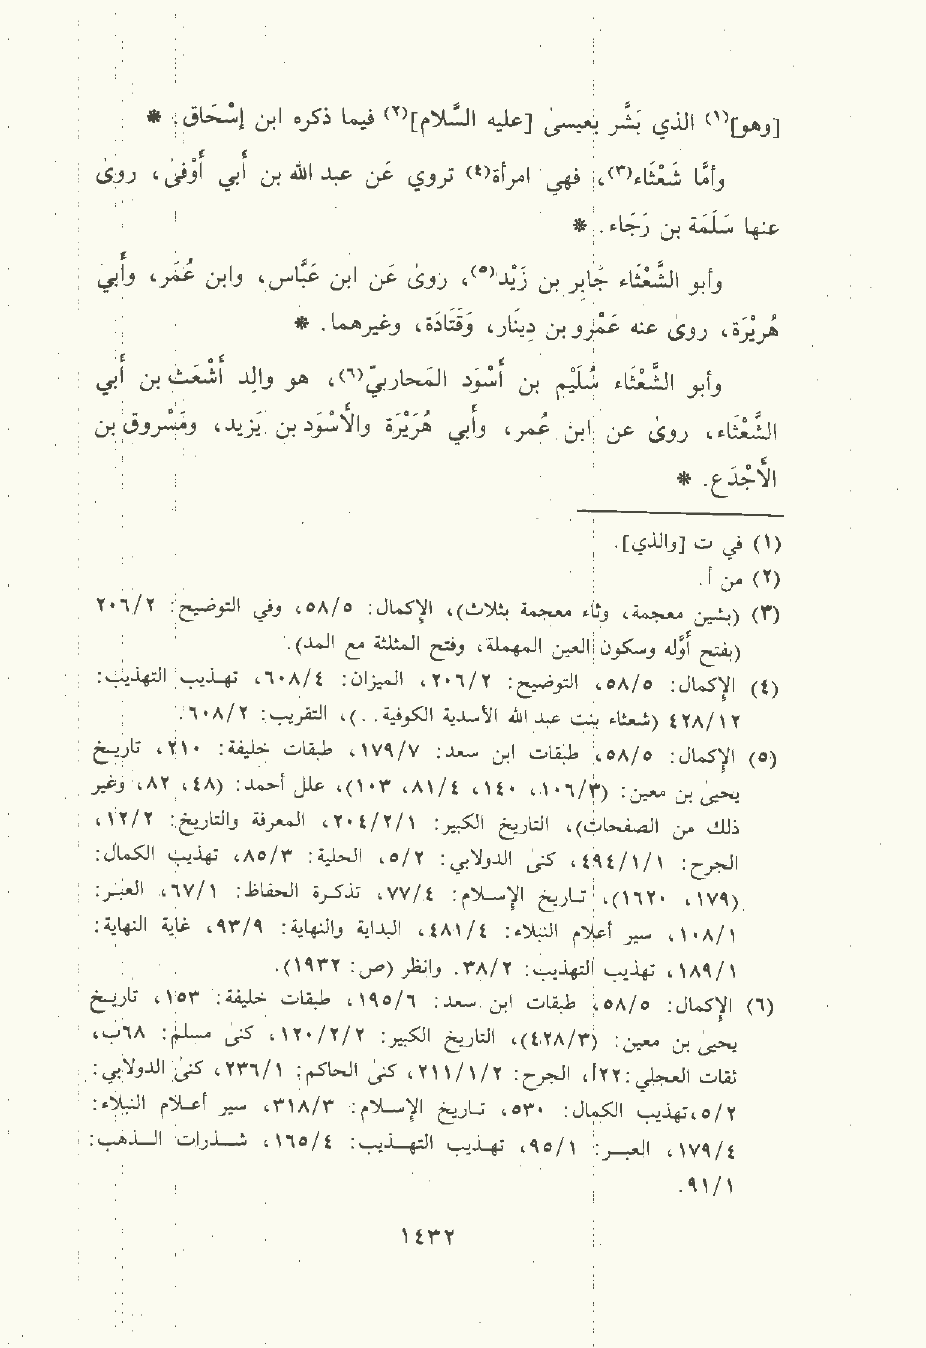 [وهو]<sup>(١)</sup> الذي بَشَّر بعيسىٰ [عليه السَّلام]<sup>(٢)</sup> فيما ذكره ابن إسْحَاق. *
وأمَّا شَعْثَاء<sup>(٣)</sup>، فهي امرأة<sup>(٤)</sup> تروي عَن عبد الله بن أبي أوْفىٰ، روىٰ
عنها سَلَمَة بن رَجَاء. *
وأبو الشَّعْثَاء جَابر بن زَيْد<sup>(٥)</sup>، روىٰ عَن ابن عَبَّاس، وابن عُمَر، وأبي
هُرَيْرَة، روىٰ عنه عَمْرو بن دِينَار، وقَتَادَة، وغيرهما. *
وأبو الشَّعْثَاء سُلَيْم بن أسْوَد المَحاربيّ<sup>(٦)</sup>، هو والد أشْعَث بن أبي
الشَّعْثَاء، روىٰ عن ابن عُمَر، وأبي هُرَيْرَة والأسْوَد بن يَزيد، ومَسْروق بن
الأجْدَع. *
(١) في ت [والذي].
(٢) من أ.
(٣) (بشين معجمة، وثاء معجمة بثلاث)، الإكمال: ٥٨/٥، وفي التوضيح: ٢٠٦/٢
(بفتح أوَّله وسكون العين المهملة، وفتح المثلثة مع المد).
(٤) الإكمال: ٥٨/٥، التوضيح: ٢٠٦/٢، الميزان: ٦٠٨/٤، تهذيب التهذيب:
٤٢٨/١٢ (شعثاء بنت عبد الله الأسدية الكوفية..)، التقريب: ٦٠٨/٢.
(٥) الإكمال: ٥٨/٥، طبقات ابن سعد: ١٧٩/٧، طبقات خليفة: ٢١٠، تاريخ
يحيىٰ بن معين: (١٠٦/٣، ١٤٠، ٨١/٤، ١٠٣)، علل أحمد: (٤٨، ٨٢، وغير
ذلك من الصفحات)، التاريخ الكبير: ٢٠٤/٢/١، المعرفة والتاريخ: ١٢/٢،
الجرح: ٤٩٤/١/١، كنىٰ الدولابي: ٥/٢، الحلية: ٨٥/٣، تهذيب الكمال:
(١٧٩، ١٦٢٠)، تاريخ الإسلام: ٧٧/٤، تذكرة الحفاظ: ٦٧/١، العبر:
١٠٨/١، سير أعلام النبلاء: ٤٨١/٤، البداية والنهاية: ٩٣/٩، غاية النهاية:
١٨٩/١، تهذيب التهذيب: ٣٨/٢. وانظر (ص: ١٩٣٢).
(٦) الإكمال: ٥٨/٥، طبقات ابن سعد: ١٩٥/٦، طبقات خليفة: ١٥٣، تاريخ
يحيىٰ بن معين: (٤٢٨/٣)، التاريخ الكبير: ١٢٠/٢/٢، كنىٰ مسلم: ٦٨ب،
ثقات العجلي: ٢٢أ، الجرح: ٢١١/١/٢، كنىٰ الحاكم: ٢٣٦/١، كنىٰ الدولابي:
٥/٢، تهذيب الكمال: ٥٣٠، تاريخ الإسلام: ٣١٨/٣، سير أعلام النبلاء:
١٧٩/٤، العبر: ٩٥/١، تهذيب التهذيب: ١٦٥/٤، شذرات الذهب:
٩١/١.
١٤٣٢